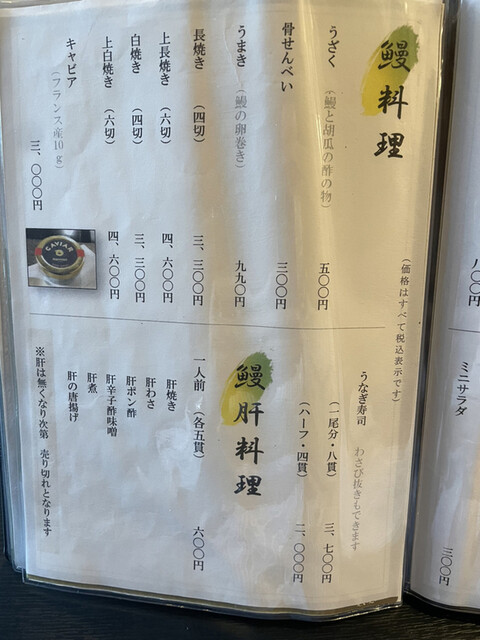 鰻料理
うざく (鰻と胡瓜の酢の物) 五〇〇円
骨せんべい 三〇〇円
うまき (鰻の卵巻き) 九九〇円
長焼き (四切) 三、三〇〇円
上長焼き (六切) 四、六〇〇円
白焼き (四切) 三、三〇〇円
上白焼き (六切) 四、六〇〇円
キャビア (フランス産10g) 三、〇〇〇円
CAVIAR
(価格はすべて税込表示です)
うなぎ寿司 わさび抜きもできます
(一尾分・八貫) 三、七〇〇円
(ハーフ・四貫) 二、〇〇〇円
鰻肝料理
一人前 (各五貫) 六〇〇円
肝焼き
肝わさ
肝ポン酢
肝辛子酢味噌
肝煮
肝の唐揚げ
※肝は無くなり次第 売り切れとなります
〇〇円
ミニサラダ 三〇〇円